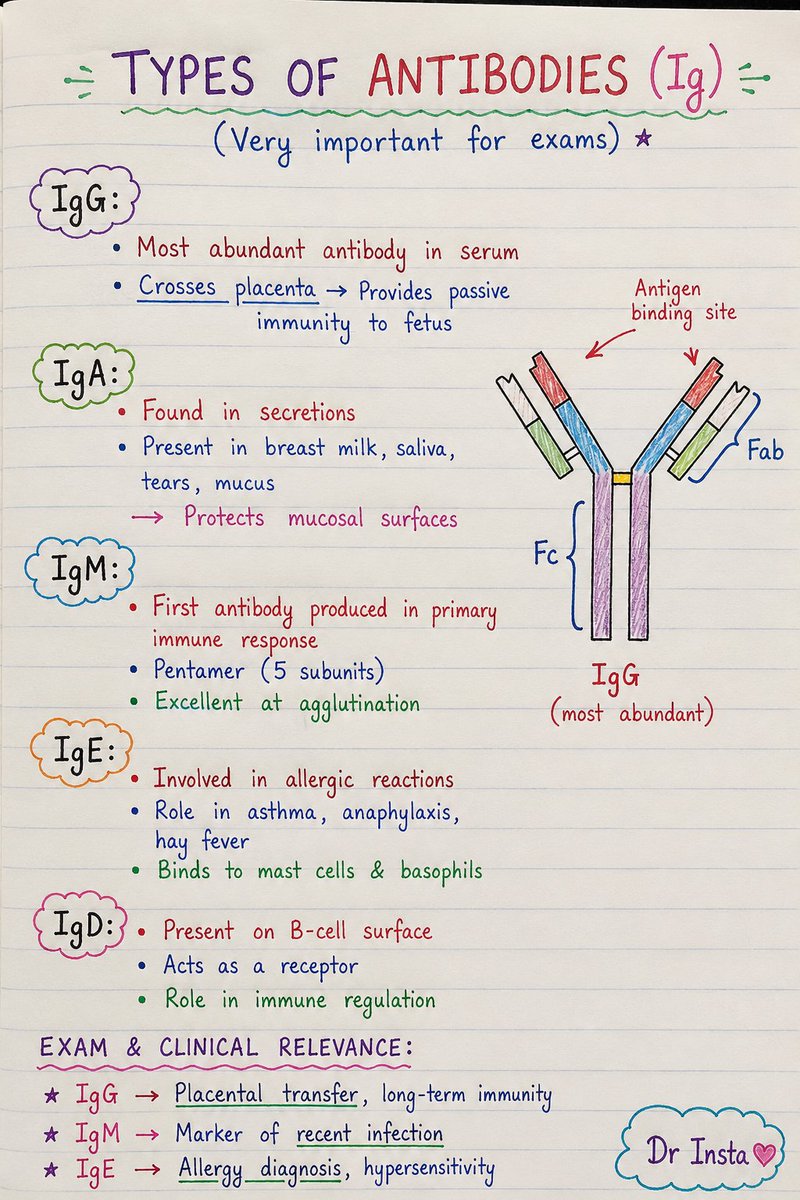 TYPES OF ANTIBODIES (Ig)
(Very important for exams) ★
IgG:
• Most abundant antibody in serum
• Crosses placenta → Provides passive
immunity to fetus
Antigen
binding site
Fab
Fc
IgG
(most abundant)
IgA:
• Found in secretions
• Present in breast milk, saliva,
tears, mucus
→ Protects mucosal surfaces
IgM:
• First antibody produced in primary
immune response
• Pentamer (5 subunits)
• Excellent at agglutination
IgE:
• Involved in allergic reactions
• Role in asthma, anaphylaxis,
hay fever
• Binds to mast cells & basophils
IgD:
• Present on B-cell surface
• Acts as a receptor
• Role in immune regulation
EXAM & CLINICAL RELEVANCE:
★ IgG → Placental transfer, long-term immunity
★ IgM → Marker of recent infection
★ IgE → Allergy diagnosis, hypersensitivity
Dr Insta